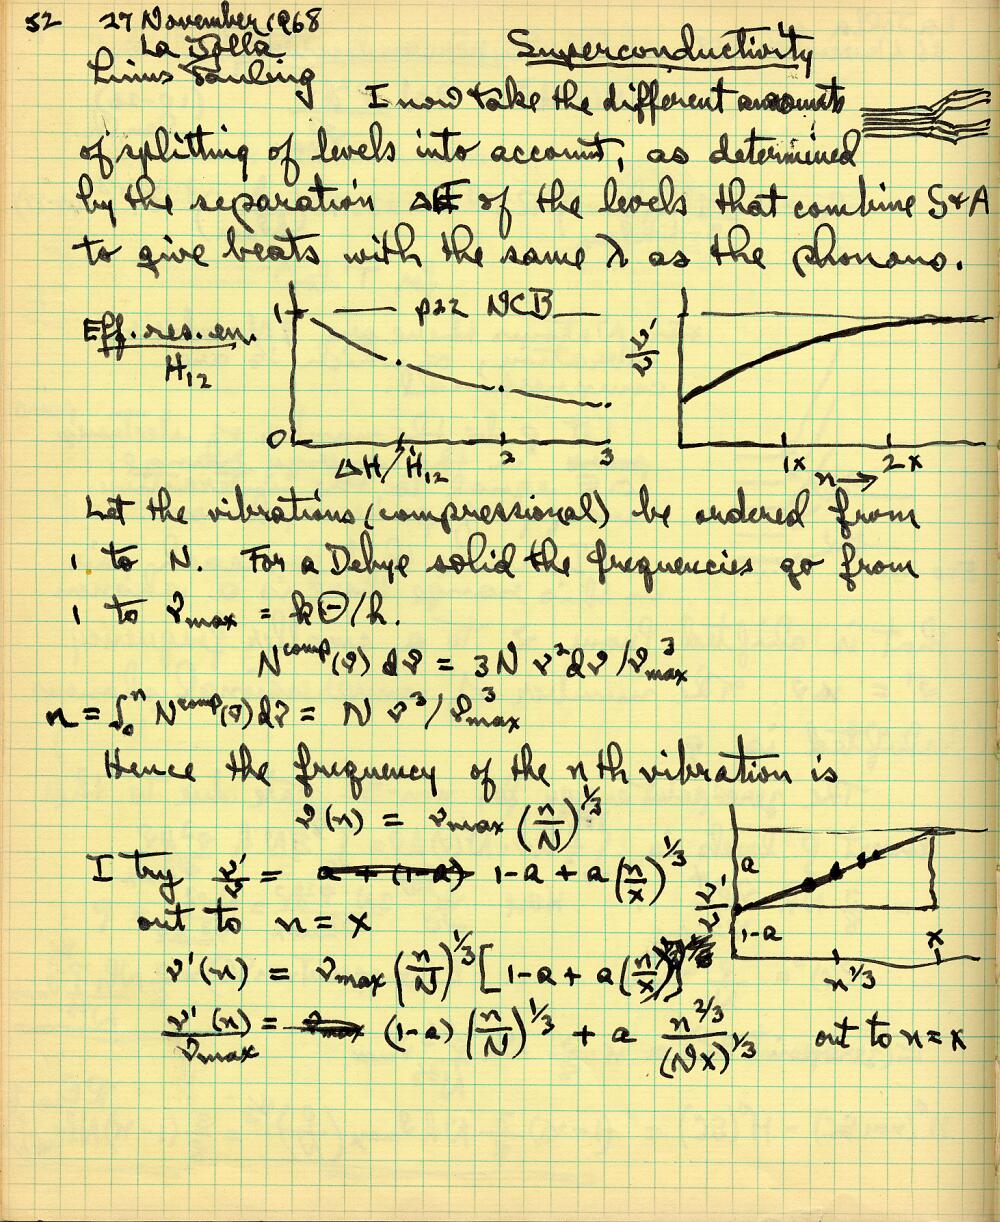 52 27 November 1968
La Jolla
Linus Pauling
Superconductivity
I now take the different amounts
of splitting of levels into account, as determined
by the separation ΔE of the levels that combine S+A
to give beats with the same λ as the phonons.
Eff. res. en.
H₁₂
1 p22 NCB
0
ΔH/H₁₂ 2 3
ν'/ν
1x 2x
n →
Let the vibrations (compressional) be ordered from
1 to N. For a Debye solid the frequencies go from
1 to ν_max = kΘ/h.
N^comp(ν) dν = 3N ν² dν/ν_max³
n = ∫₀ⁿ N^comp(ν) dν = N ν³/ν_max³
Hence the frequency of the nth vibration is
ν(n) = ν_max (n/N)^1/3
I try ν'/ν = a + (1-a) 1-a + a (n/x)^1/3
out to n = x
ν'(n) = ν_max (n/N)^1/3 [1-a + a (n/x)^1/3]
ν'(n)/ν_max = ν_max (1-a) (n/N)^1/3 + a n^2/3/(Nx)^1/3 out to n = x
a
ν'/ν
1-a
x
n^1/3